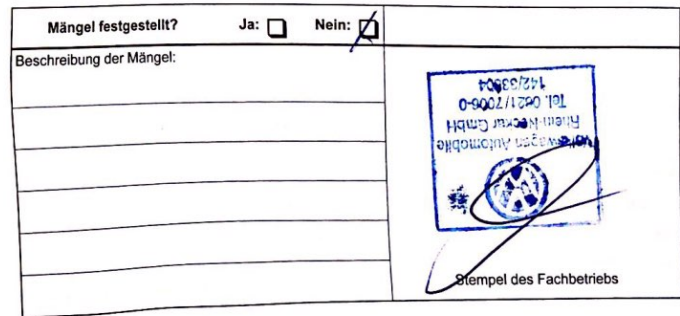 Mängel festgestellt? Ja: Nein:
Beschreibung der Mängel:
Volkswagen Automobile
Rhein-Neckar GmbH
Tel. 0621/7006-0
Stempel des Fachbetriebs